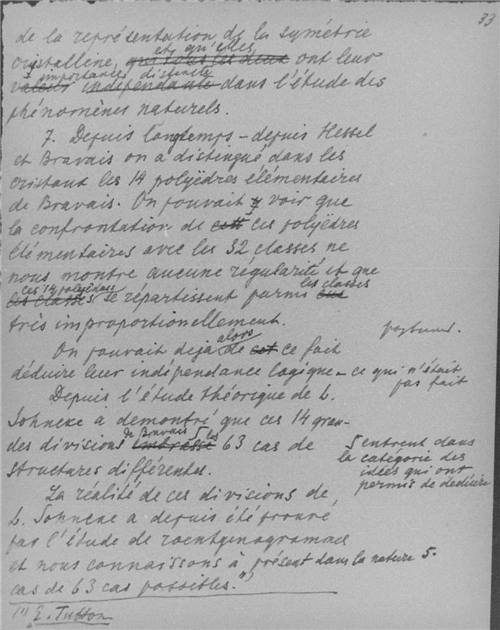 33
de la représentation de la symétrie
cristalline, et qu'elles que tous les deux ont leur
valeur importance distincte indépendante dans l'étude des
phénomènes naturels.
7. Depuis longtemps – depuis Hessel
et Bravais on a distingué dans les
cristaux les 14 polyèdres élémentaires
de Bravais. On pouvait y voir que
la confrontation de ces polyèdres
élémentaires avec les 32 classes ne
nous montre aucune régularité et que
ces 14 polyèdres
les classes se répartissent parmi les classes
très improportionellement.
On pouvait déjà alors de cet ce fait
déduire leur indépendance logique – ce qui n'était
pas fait
Depuis l'étude théorique de L.
Sohncke a démontré que ces 14 gran-
des divisions de Bravais embrasse les 63 cas de
structures différentes.
entrent dans
la catégorie des
idées qui ont
permis de déduire
La réalité de ces divisions de
L. Sohncke a depuis été prouvé
par l'étude de roentgenogrammes
et nous connaissons à présent dans la nature 5.
cas de 63 cas possibles."1)
1) E. Tutton